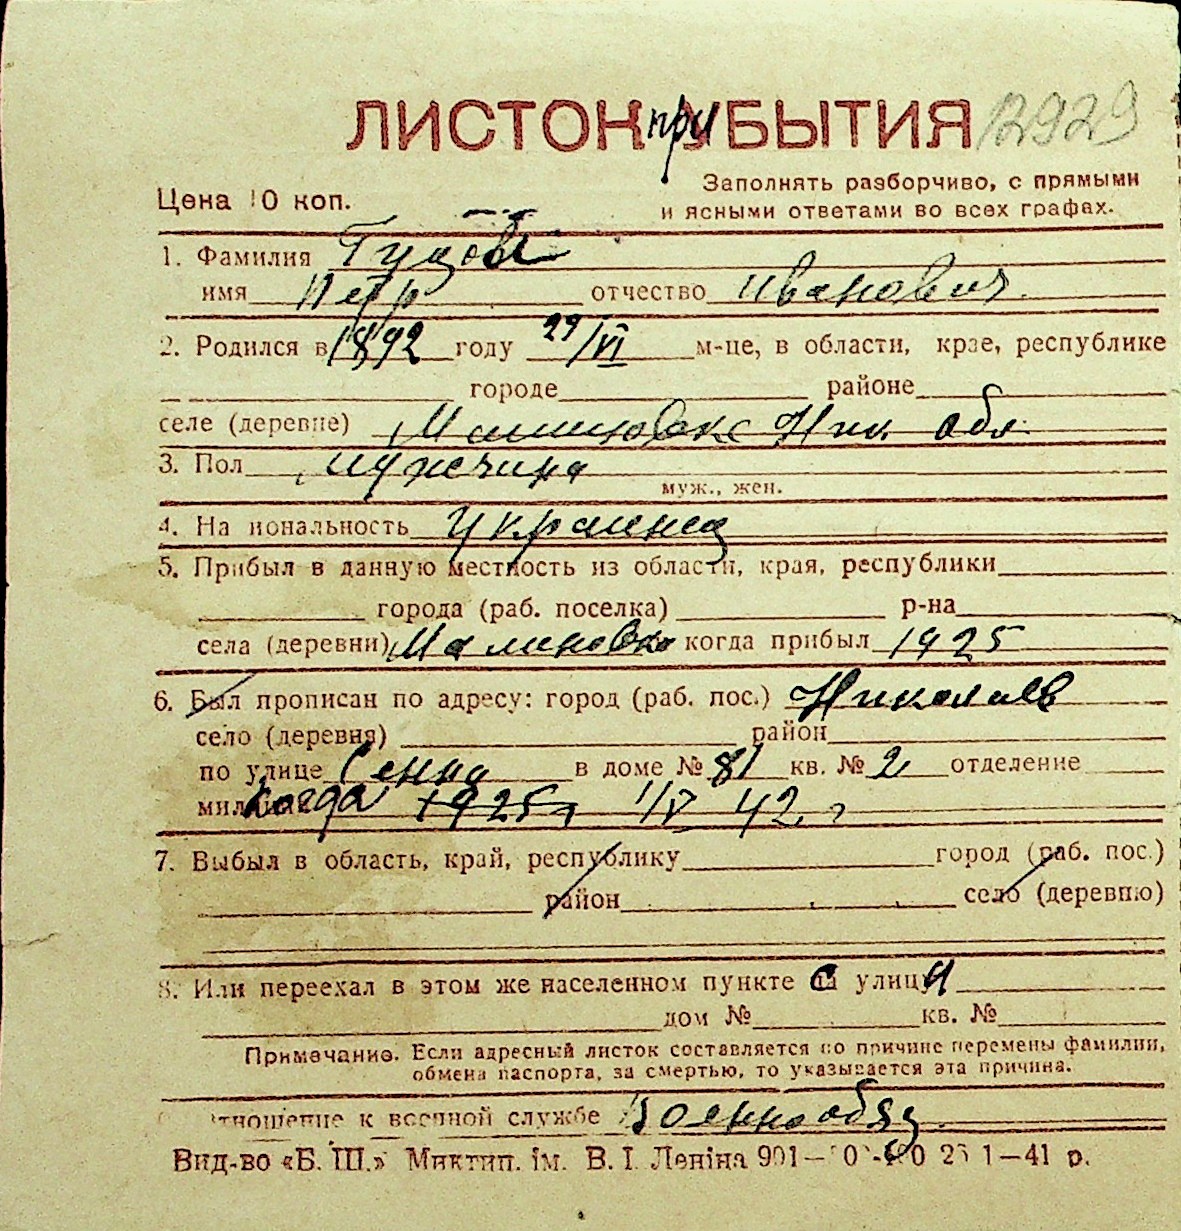 ЛИСТОК при УБЫТИЯ 12929
Цена 10 коп.
Заполнять разборчиво, с прямыми
и ясными ответами во всех графах.
1. Фамилия
имя Петр отчество Иванович
2. Родился в 1892 году 29/VI м-це, в области, крае, республике
городе районе
селе (деревне) Малиновке Ник обл
3. Пол мужчина
муж., жен.
4. Национальность украинец
5. Прибыл в данную местность из области, края, республики
города (раб. поселка) р-на
села (деревни) Малиновка когда прибыл 1925
6. Был прописан по адресу: город (раб. пос.) Николаев
село (деревня) район
по улице Сенная в доме № 81 кв. № 2 отделение
когда 1925 г 1/V 42 г
7. Выбыл в область, край, республику город (раб. пос.)
район село (деревню)
8. Или переехал в этом же населенном пункте с улицы
дом № кв. №
Примечание. Если адресный листок составляется по причине перемены фамилии,
обмена паспорта, за смертью, то указывается эта причина.
Отношение к военной службе Военнообяз.
Вид-во «Б. Ш.» Миктип. ім. В. І. Леніна 1—41 р.